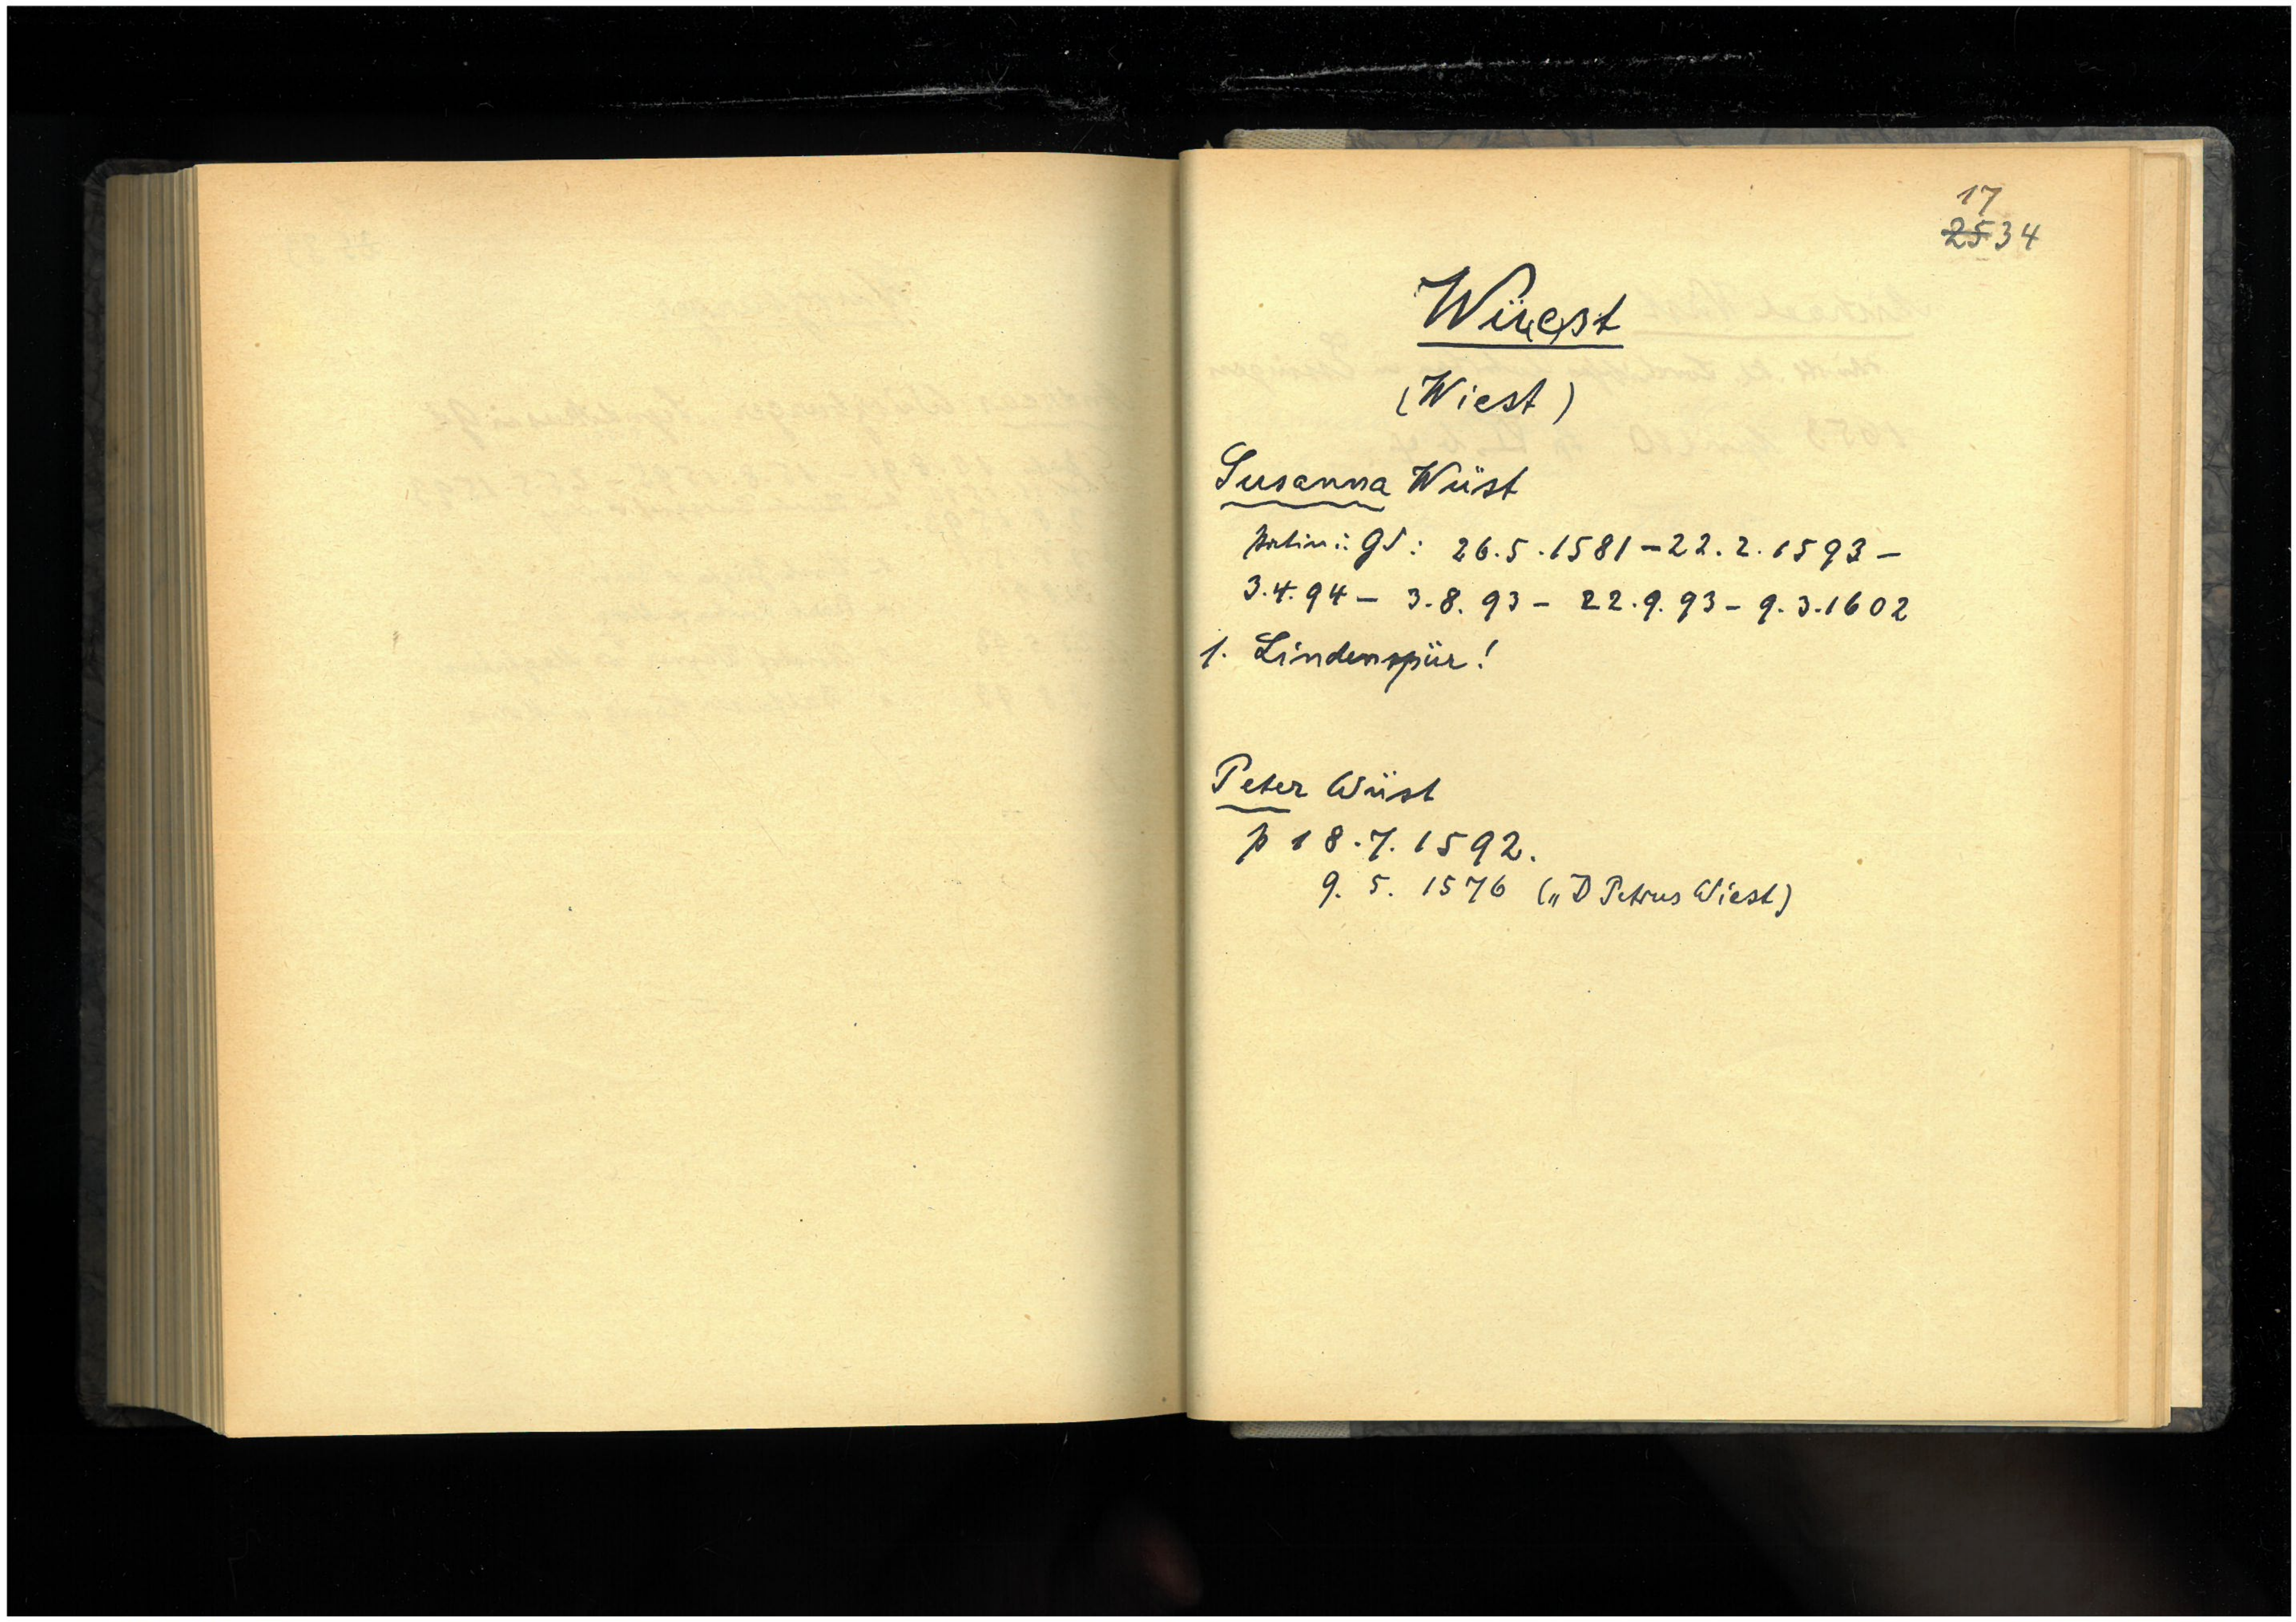 17
2534
Wü(e)st
(Wiest)
Susanna Wüst
Patin i. Gd: 26.5.1581 – 22.2.1593 –
3.4.94 – 3.8.93 – 22.9.93 – 9.3.1602
1. Lindenspür!
Peter Wüst
p 18.7.1592.
9.5.1576 („D Petrus Wiest)